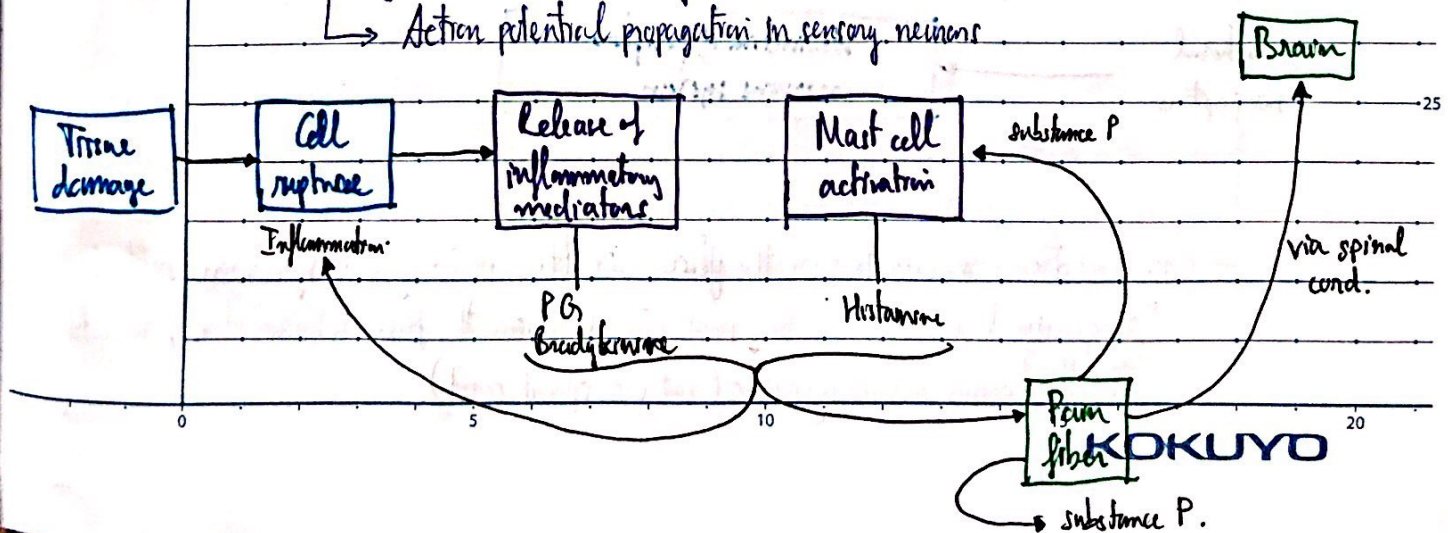 Action potential propagation in sensory neurons
Brain
25
Tissue
damage
Cell
rupture
Release of
inflammatory
mediators
Mast cell
activation
substance P
Inflammation
via spinal
cord.
PG
Bradykinine
Histamine
Pain
fiber
0
5
10
20
KOKUYO
substance P.